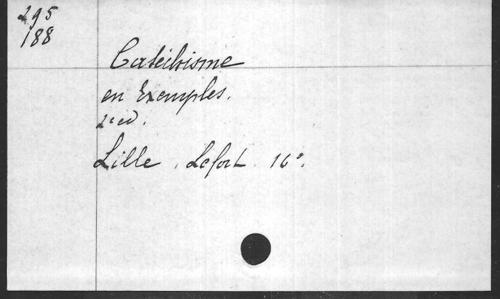 295
188
Catéchisme
en Exemples.
2e ed.
Lille. Lefort. 16°.